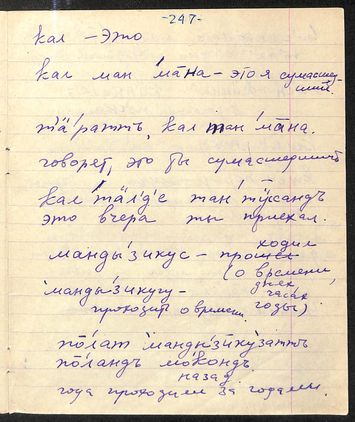 -247-
кал - это
кал ман ма̄на - это я сумасшед-
ший.
тӓратть, кал тан ма̄на.
говорят, это ты сумасшедший
кал тӓлʼдʼе тан тӱсандъ
это вчера ты приехал.
мандызикус - прошел
ходил
(о времени,
днях
часах
годы)
мандызикугу -
проходить о времени.
по̄лат мандызикузатть
по̄ландъ мо̄кондъ
назад
года проходили за годами.